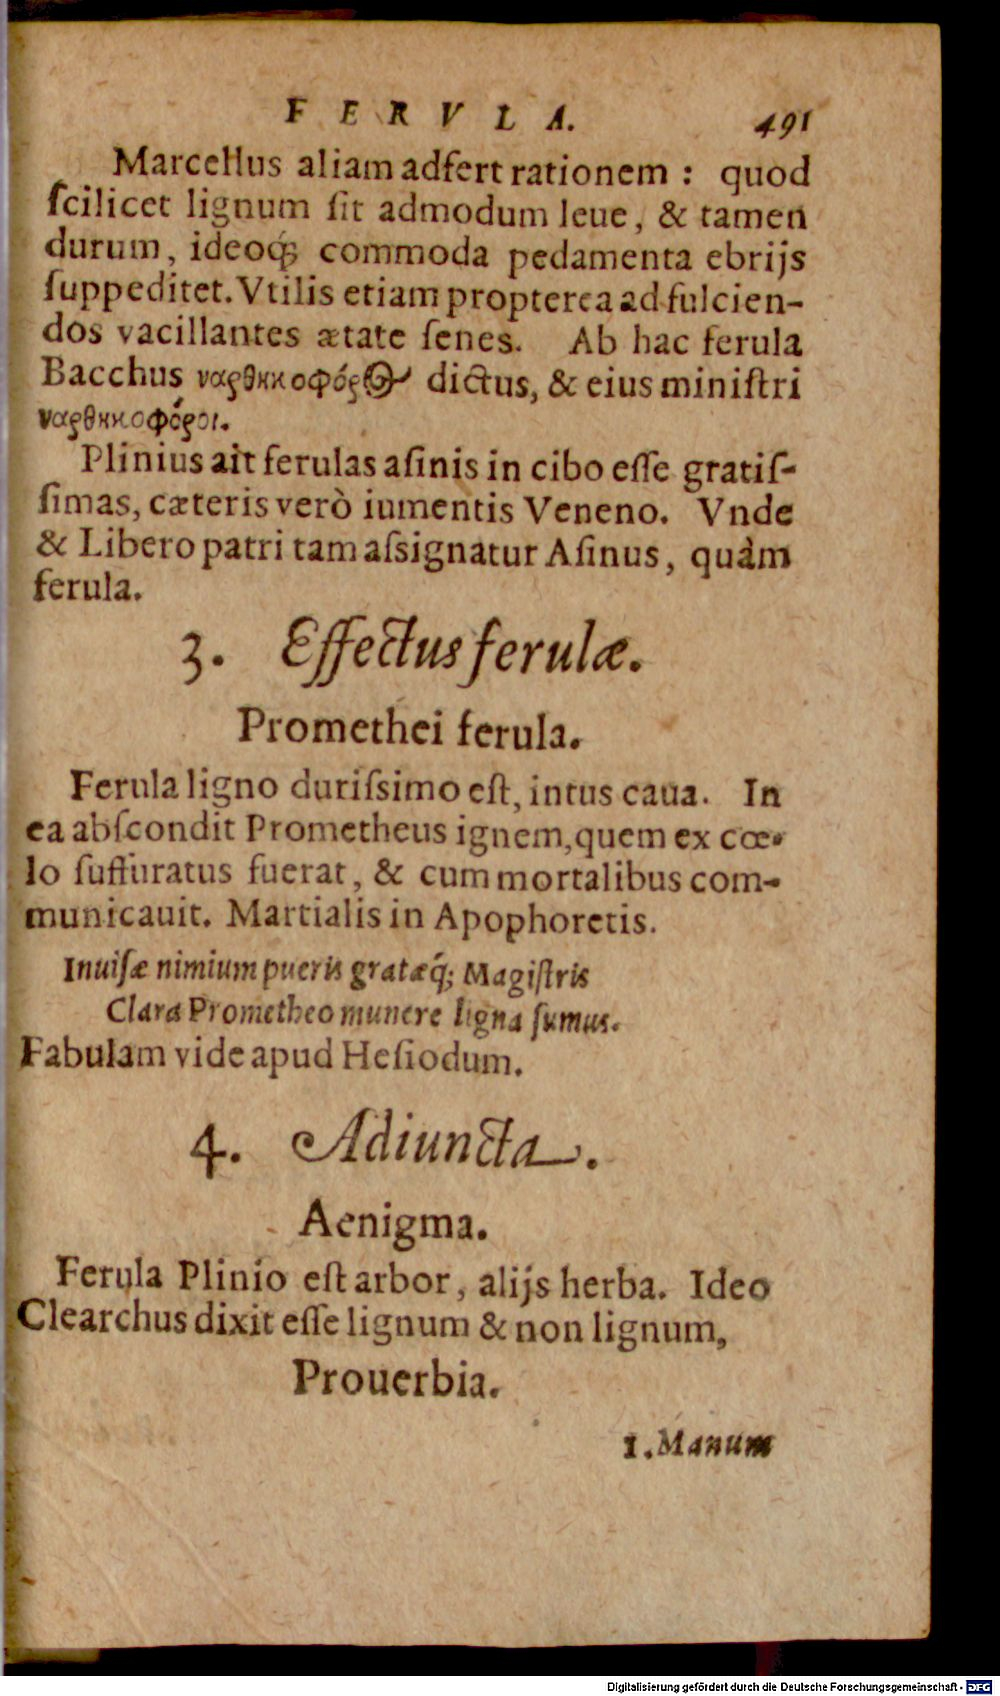 FERVLA. 491
Marcellus aliam adfert rationem : quod
ſcilicet lignum ſit admodum leue, & tamen
durum, ideoq́; commoda pedamenta ebrijs
ſuppeditet. Vtilis etiam propterea ad fulcien-
dos vacillantes ætate ſenes. Ab hac ferula
Bacchus ναρθηκοφόρος dictus, & eius miniſtri
ναρθηκοφόροι.
Plinius ait ferulas aſinis in cibo eſſe gratiſ-
ſimas, cæteris verò iumentis Veneno. Vnde
& Libero patri tam aſsignatur Aſinus, quàm
ferula.
3. Effectus ferulæ.
Promethei ferula.
Ferula ligno duriſsimo eſt, intus caua. In
ea abſcondit Prometheus ignem, quem ex cœ-
lo ſuffuratus fuerat, & cum mortalibus com-
municauit. Martialis in Apophoretis.
Inuiſæ nimium pueris gratæq́; Magiſtris
Clara Prometheo munere ligna ſumus.
Fabulam vide apud Heſiodum.
4. Adiuncta.
Aenigma.
Ferula Plinio eſt arbor, alijs herba. Ideo
Clearchus dixit eſſe lignum & non lignum,
Prouerbia.
1. Manum
Digitalisierung gefördert durch die Deutsche Forschungsgemeinschaft - DFG